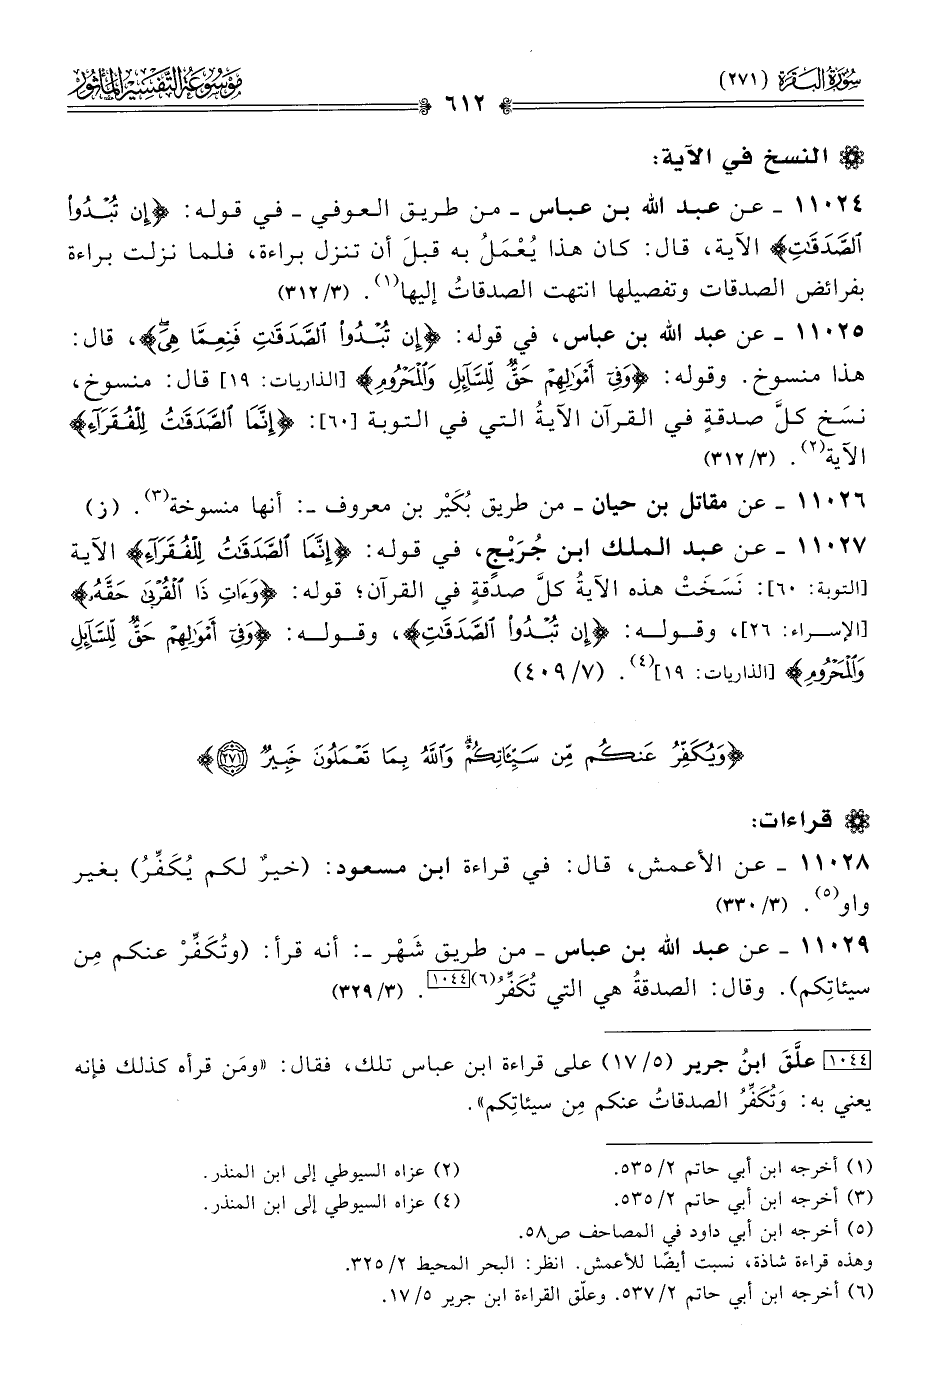 سُورَةُ البَقَرَة (٢٧١)
٦١٢
مَوْسُوعَةُ التَّفْسِيْرِ المَأْثُورِ
النسخ في الآية:
١١٠٢٤ ـ عن عبد الله بن عباس ـ من طريق العوفي ـ في قوله: ﴿إِن تُبْدُوا۟
ٱلصَّدَقَـٰتِ﴾ الآية، قال: كان هذا يُعْمَلُ به قبلَ أن تنزل براءة، فلما نزلت براءة
بفرائض الصدقات وتفصيلها انتهت الصدقاتُ إليها(١). (٣/ ٣١٢)
١١٠٢٥ ـ عن عبد الله بن عباس، في قوله: ﴿إِن تُبْدُوا۟ ٱلصَّدَقَـٰتِ فَنِعِمَّا هِىَۖ﴾، قال:
هذا منسوخ. وقوله: ﴿وَفِىٓ أَمْوَٰلِهِمْ حَقٌّ لِّلسَّآئِلِ وَٱلْمَحْرُومِ﴾ [الذاريات: ١٩] قال: منسوخ،
نسَخ كلَّ صدقةٍ في القرآن الآيةُ التي في التوبة [٦٠]: ﴿إِنَّمَا ٱلصَّدَقَـٰتُ لِلْفُقَرَآءِ﴾
الآية(٢). (٣/ ٣١٢)
١١٠٢٦ ـ عن مقاتل بن حيان ـ من طريق بُكَيْر بن معروف ـ: أنها منسوخة(٣). (ز)
١١٠٢٧ ـ عن عبد الملك ابن جُرَيْجٍ، في قوله: ﴿إِنَّمَا ٱلصَّدَقَـٰتُ لِلْفُقَرَآءِ﴾ الآية
[التوبة: ٦٠]: نَسَخَتْ هذه الآيةُ كلَّ صدقةٍ في القرآن؛ قوله: ﴿وَءَاتِ ذَا ٱلْقُرْبَىٰ حَقَّهُۥ﴾
[الإسراء: ٢٦]، وقوله: ﴿إِن تُبْدُوا۟ ٱلصَّدَقَـٰتِ﴾، وقوله: ﴿وَفِىٓ أَمْوَٰلِهِمْ حَقٌّ لِّلسَّآئِلِ
وَٱلْمَحْرُومِ﴾ [الذاريات: ١٩](٤). (٧/ ٤٠٩)
﴿وَيُكَفِّرُ عَنكُم مِّن سَيِّـَٔاتِكُمْۗ وَٱللَّهُ بِمَا تَعْمَلُونَ خَبِيرٌ ٢٧١﴾
قراءات:
١١٠٢٨ ـ عن الأعمش، قال: في قراءة ابن مسعود: (خيرٌ لكم يُكَفِّرُ) بغير
واو(٥). (٣/ ٣٣٠)
١١٠٢٩ ـ عن عبد الله بن عباس ـ من طريق شَهْر ـ: أنه قرأ: (وتُكَفِّرْ عنكم مِن
سيئاتِكم). وقال: الصدقةُ هي التي تُكَفِّرُ(٦)[١٠٤٤]. (٣/ ٣٢٩)
[١٠٤٤] علَّقَ ابنُ جرير (٥/ ١٧) على قراءة ابن عباس تلك، فقال: «ومَن قرأه كذلك فإنه
يعني به: وَتُكَفِّرُ الصدقاتُ عنكم مِن سيئاتِكم».
(١) أخرجه ابن أبي حاتم ٢/ ٥٣٥.
(٢) عزاه السيوطي إلى ابن المنذر.
(٣) أخرجه ابن أبي حاتم ٢/ ٥٣٥.
(٤) عزاه السيوطي إلى ابن المنذر.
(٥) أخرجه ابن أبي داود في المصاحف ص٥٨.
وهذه قراءة شاذة، نسبت أيضًا للأعمش. انظر: البحر المحيط ٢/ ٣٢٥.
(٦) أخرجه ابن أبي حاتم ٢/ ٥٣٧. وعلّق القراءة ابن جرير ٥/ ١٧.